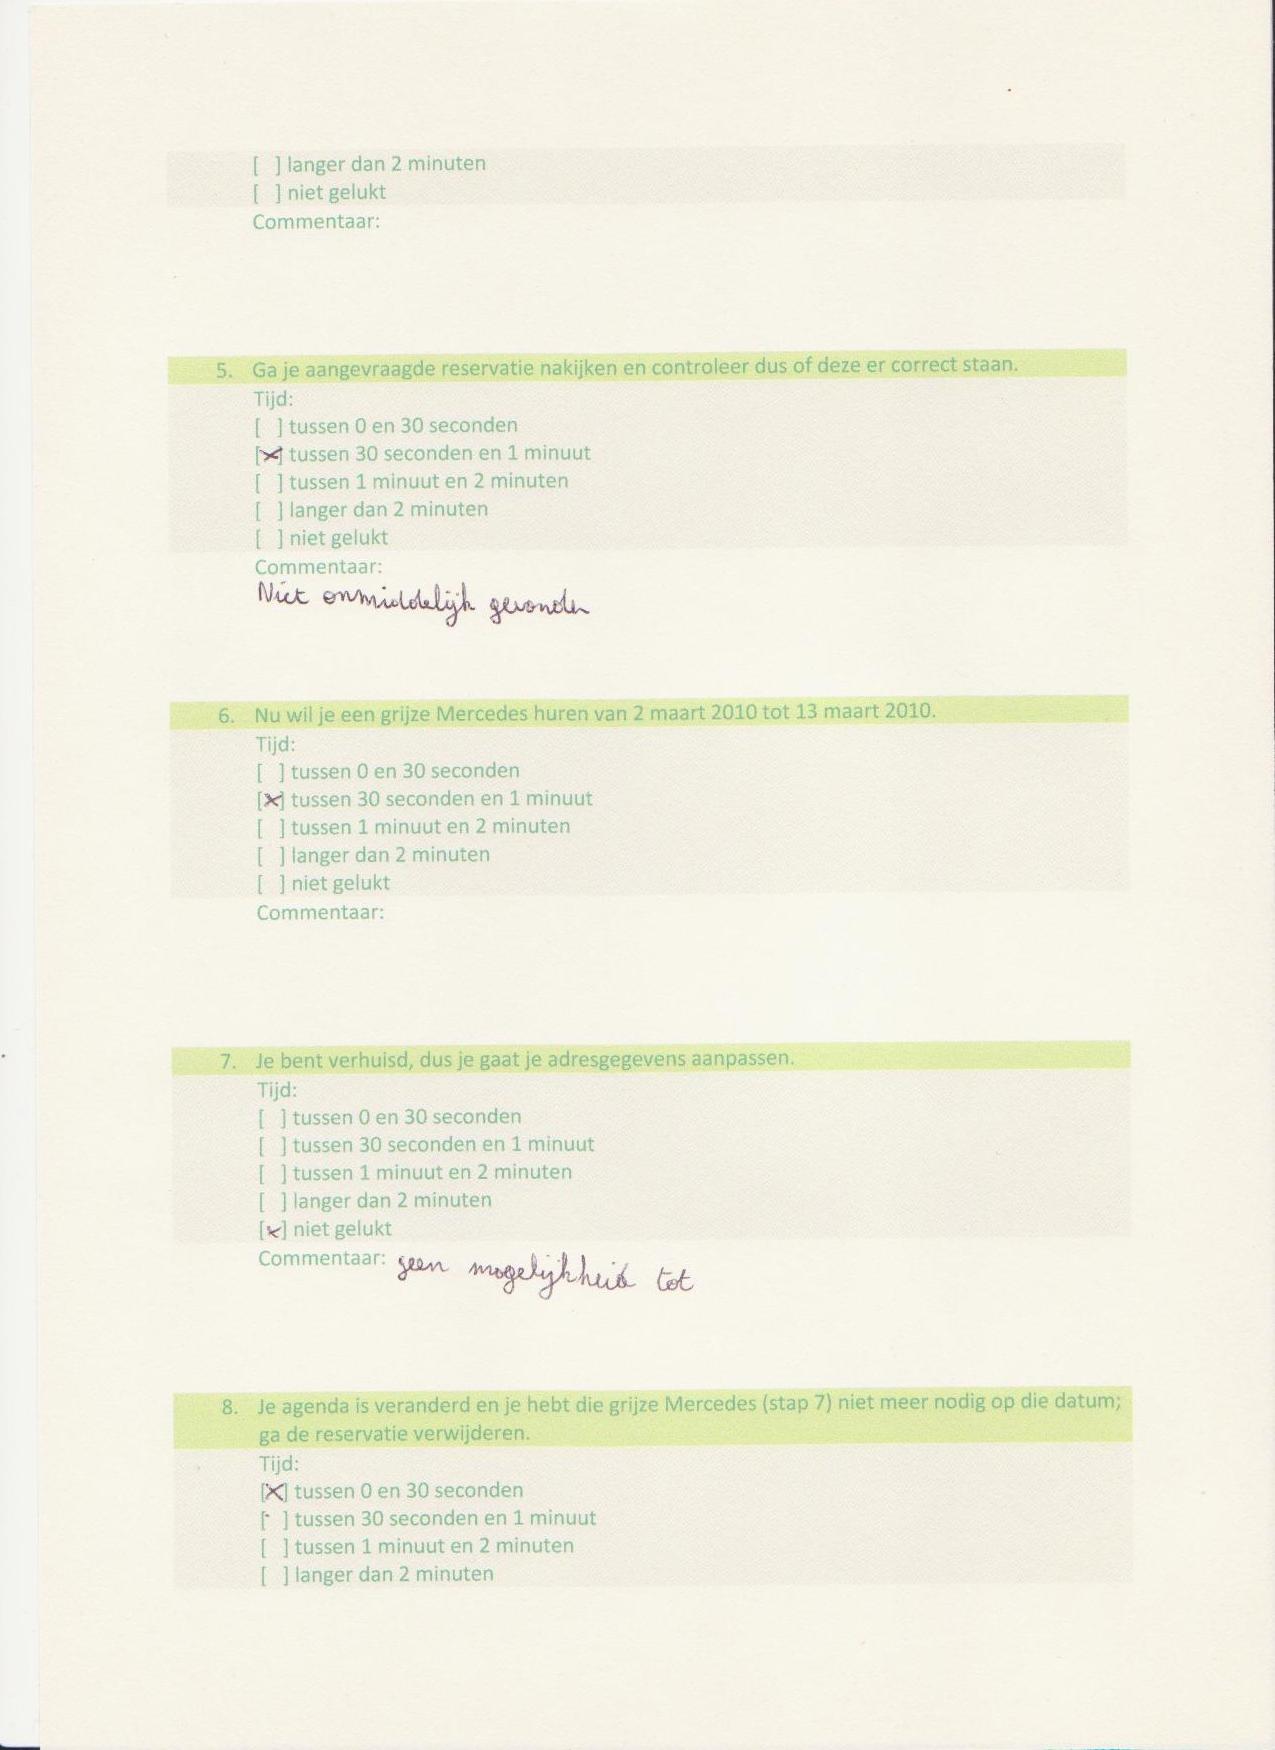 [ ] langer dan 2 minuten
[ ] niet gelukt
Commentaar:
5. Ga je aangevraagde reservatie nakijken en controleer dus of deze er correct staan.
Tijd:
[ ] tussen 0 en 30 seconden
[x] tussen 30 seconden en 1 minuut
[ ] tussen 1 minuut en 2 minuten
[ ] langer dan 2 minuten
[ ] niet gelukt
Commentaar:
Niet onmiddelijk gevonden
6. Nu wil je een grijze Mercedes huren van 2 maart 2010 tot 13 maart 2010.
Tijd:
[ ] tussen 0 en 30 seconden
[x] tussen 30 seconden en 1 minuut
[ ] tussen 1 minuut en 2 minuten
[ ] langer dan 2 minuten
[ ] niet gelukt
Commentaar:
7. Je bent verhuisd, dus je gaat je adresgegevens aanpassen.
Tijd:
[ ] tussen 0 en 30 seconden
[ ] tussen 30 seconden en 1 minuut
[ ] tussen 1 minuut en 2 minuten
[ ] langer dan 2 minuten
[x] niet gelukt
Commentaar: geen mogelijkheid tot
8. Je agenda is veranderd en je hebt die grijze Mercedes (stap 7) niet meer nodig op die datum;
ga de reservatie verwijderen.
Tijd:
[x] tussen 0 en 30 seconden
[ ] tussen 30 seconden en 1 minuut
[ ] tussen 1 minuut en 2 minuten
[ ] langer dan 2 minuten